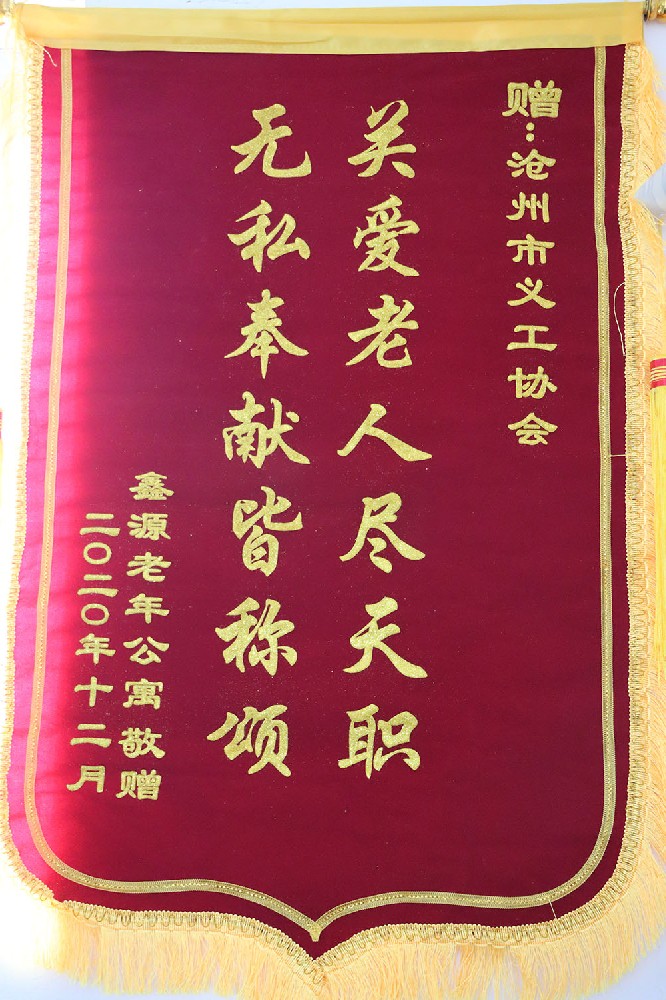 赠:沧州市义工协会
关爱老人尽天职
无私奉献皆称颂
鑫源老年公寓敬赠
二〇二〇年十二月